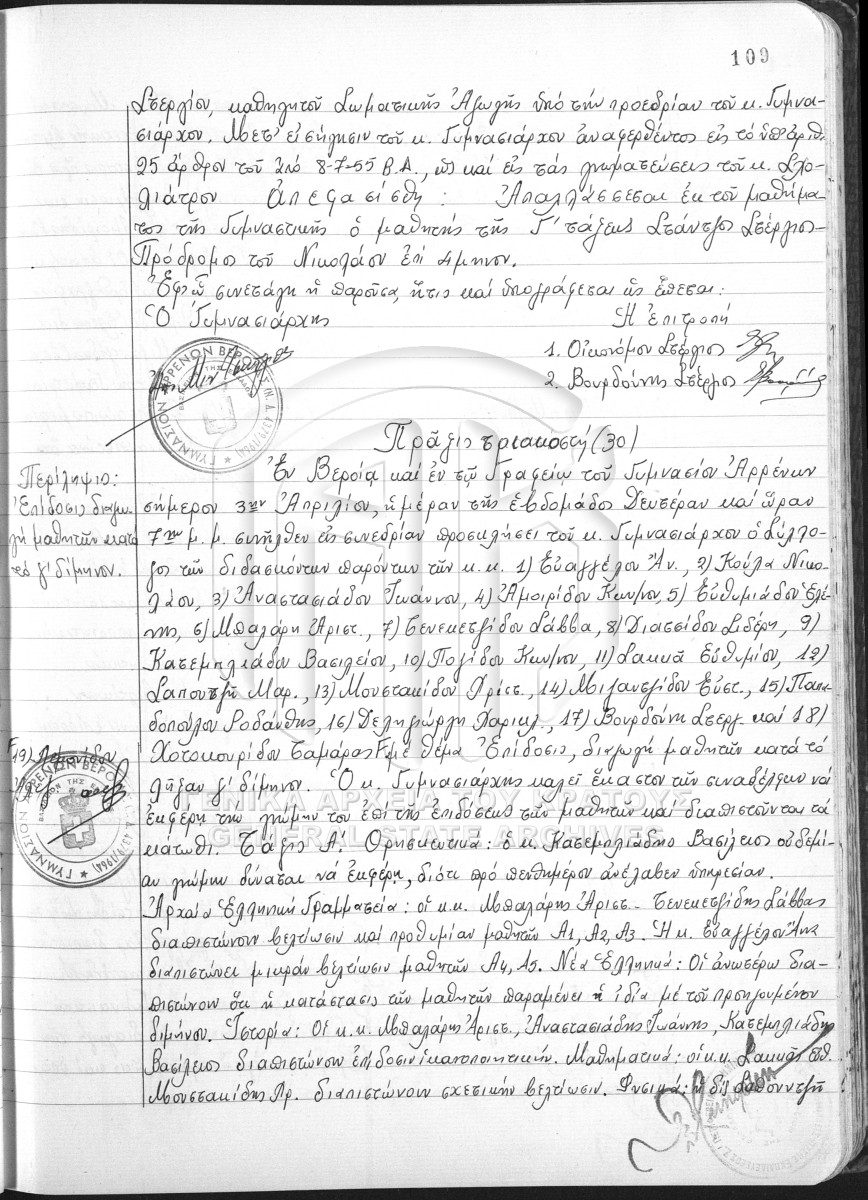 109
Στεργίου, καθηγητοῦ Σωματικῆς Ἀγωγῆς ὑπό τήν προεδρίαν τοῦ κ. Γυμνα-
σιάρχου. Μετ' εἰσήγησιν τοῦ κ. Γυμνασιάρχου ἀναφερθέντος εἰς τό ὑπ' ἀριθ.
25 ἄρθρον τοῦ ἀπό 8-7-55 Β.Δ., ὡς καί εἰς τάς γνωματεύσεις τοῦ κ. Σχο-
λιάτρου Ἀπεφασίσθη: Ἀπαλλάσσεται ἐκ τοῦ μαθήμα-
τος τῆς Γυμναστικῆς ὁ μαθητής τῆς Γ' τάξεως Στάντζος Στέργιος-
Πρόδρομος τοῦ Νικολάου ἐπί 4μηνον.
Ἐφ' ᾧ συνετάγη ἡ παροῦσα, ἥτις καί ὑπογράφεται ὡς ἕπεται:
Ὁ Γυμνασιάρχης
Ἡ Ἐπιτροπή
1. Οἰκονόμου Στέργιος
2. Βουρδούνης Στέργιος
ΓΥΜΝΑΣΙΟΝ ΑΡΡΕΝΩΝ ΒΕΡΟΙΑΣ
Πρᾶξις τριακοστή (30)
Περίληψις:
Ἐπίδοσις διαγω-
γή μαθητῶν κατά
τό γ' δίμηνον.
Ἐν Βεροίᾳ καί ἐν τῷ Γραφείῳ τοῦ Γυμνασίου Ἀρρένων
σήμερον 3ην Ἀπριλίου, ἡμέραν τῆς ἑβδομάδος Δευτέραν καί ὥραν
7ην μ.μ. συνῆλθεν εἰς συνεδρίαν προσκλήσει τοῦ κ. Γυμνασιάρχου ὁ Σύλλο-
γος τῶν διδασκόντων παρόντων τῶν κ.κ. 1) Εὐαγγέλου Ἀν., 2) Κούλα Νικο-
λάου, 3) Ἀναστασιάδου Ἰωάννου, 4) Ἀμοιρίδου Κων/νου, 5) Εὐθυμιάδου Ἑλέ-
νης, 6) Μπαλάρη Ἀριστ., 7) Τενεκετζίδου Σάββα, 8) Διασσίδου Σιδέρη, 9)
Κατεμπλιάδου Βασιλείου, 10) Πογίδου Κων/νου, 11) Σακκᾶ Εὐθυμίου, 12)
Σαπουτζῆ Μαρ., 13) Μουστακίδου Χρίστ., 14) Μιχαντζίδου Εὐστ., 15) Παπα-
δοπούλου Ροδάνθης, 16) Δεληγιώργη Χαρικλ., 17) Βουρδούνη Στεργ. καί 18)
19) Λεμονίδου
Χοτοκουρίδου Ταμάρας μέ θέμα Ἐπίδοσις, διαγωγή μαθητῶν κατά τό
λῆξαν γ' δίμηνον. Ὁ κ. Γυμνασιάρχης καλεῖ ἕκαστον τῶν συναδέλφων νά
ἐκφέρῃ τήν γνώμην του ἐπί τῆς ἐπιδόσεως τῶν μαθητῶν καί διαπιστοῦνται τά
κάτωθι. Τάξις Α': Θρησκευτικά: ὁ κ. Κατεμπλιάδης Βασίλειος οὐδεμί-
αν γνώμην δύναται νά ἐκφέρῃ, διότι πρό πενθημέρου ἀνέλαβεν ὑπηρεσίαν.
Ἀρχαία Ἑλληνική Γραμματεία: οἱ κ.κ. Μπαλάρης Ἀριστ. - Τενεκετζίδης Σάββας
διαπιστώνουν βελτίωσιν καί προθυμίαν μαθητῶν Α1, Α2, Α3. Ἡ κ. Εὐαγγέλου Ἄννα
διαπιστώνει μικράν βελτίωσιν μαθητῶν Α4, Α5. Νέα Ἑλληνικά: Οἱ ἀνωτέρω δια-
πιστώνουν ὅτι ἡ κατάστασις τῶν μαθητῶν παραμένει ἡ ἰδία μέ τοῦ προηγουμένου
διμήνου. Ἱστορία: Οἱ κ.κ. Μπαλάρης Ἀριστ., Ἀναστασιάδης Ἰωάννης, Κατεμπλιάδης
Βασίλειος διαπιστώνουν ἐπίδοσιν ἱκανοποιητικήν. Μαθηματικά: οἱ κ.κ. Σακκᾶς Εὐθ.
Μουστακίδης Χρ. διαπιστώνουν σχετικήν βελτίωσιν. Φυσικά: ἡ δίς Σαπουντζῆ
ΓΕΝΙΚΑ ΑΡΧΕΙΑ ΤΟΥ ΚΡΑΤΟΥΣ
GENERAL STATE ARCHIVES